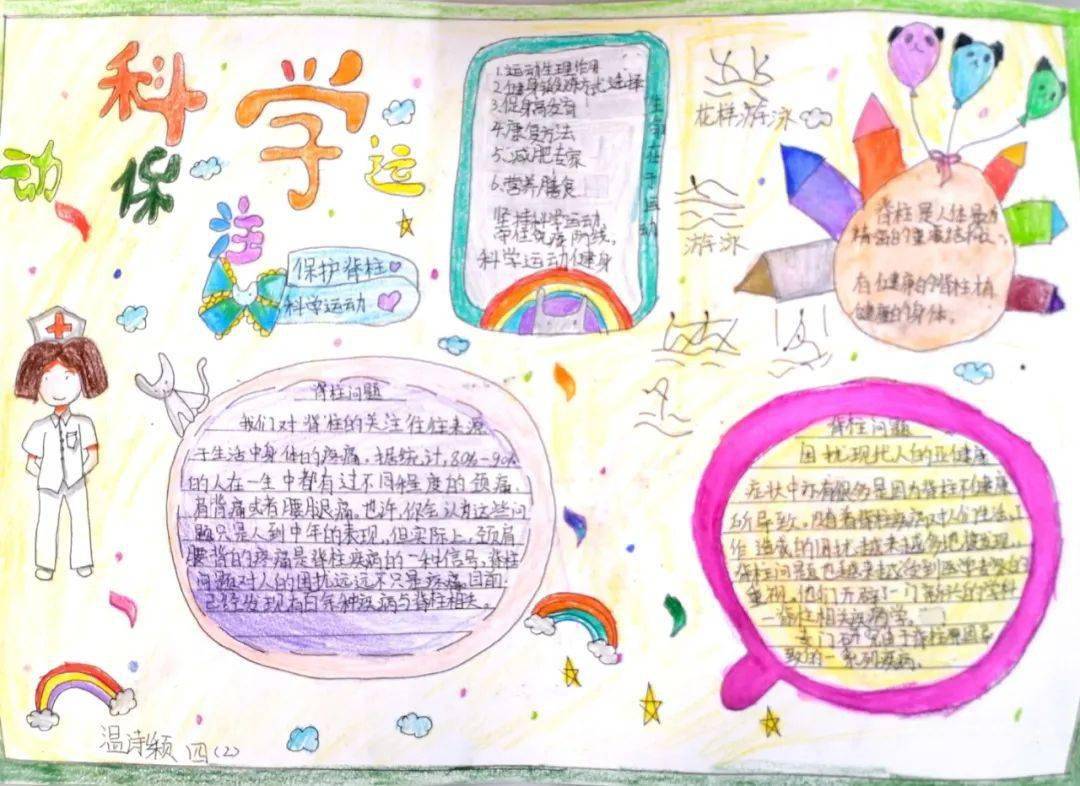 科学
动保运
注
保护脊柱
科学运动
1.运动生理作用
2.健身锻炼方式选择
3.促身高发育
4.康复方法
5.减肥专家
6.营养膳食
坚持科学运动,
牢住免疫防线。
科学运动健身
生命在于运动
花样游泳
游泳
脊柱是人体最为
精密的重要结构。
有健康的脊柱才有
健康的身体。
脊柱问题
我们对脊柱的关注往往来源
于生活中身体的疼痛,据统计,80%-90%
的人在一生中都有过不同程度的颈痛、
肩背痛或者腰腿痛。也许,你会认为这些问
题只是人到中年的表现,但实际上,颈肩
腰背的疼痛是脊柱疾病的一种信号,脊柱
问题对人的困扰远远不只是疼痛,目前
已经发现有百余种疾病与脊柱相关。
脊柱问题
困扰现代人的亚健康
症状中亦有很多是因为脊柱不健康
所导致。随着脊柱疾病对人们生活、工
作造成的困扰越来越多地被发现,
脊柱问题也越来越受到医学专家的
重视。他们开辟了一门新兴的学科
—脊柱相关疾病学。
专门研究由于脊柱原因导
致的一系列疾病。
温诗颖 四(2)